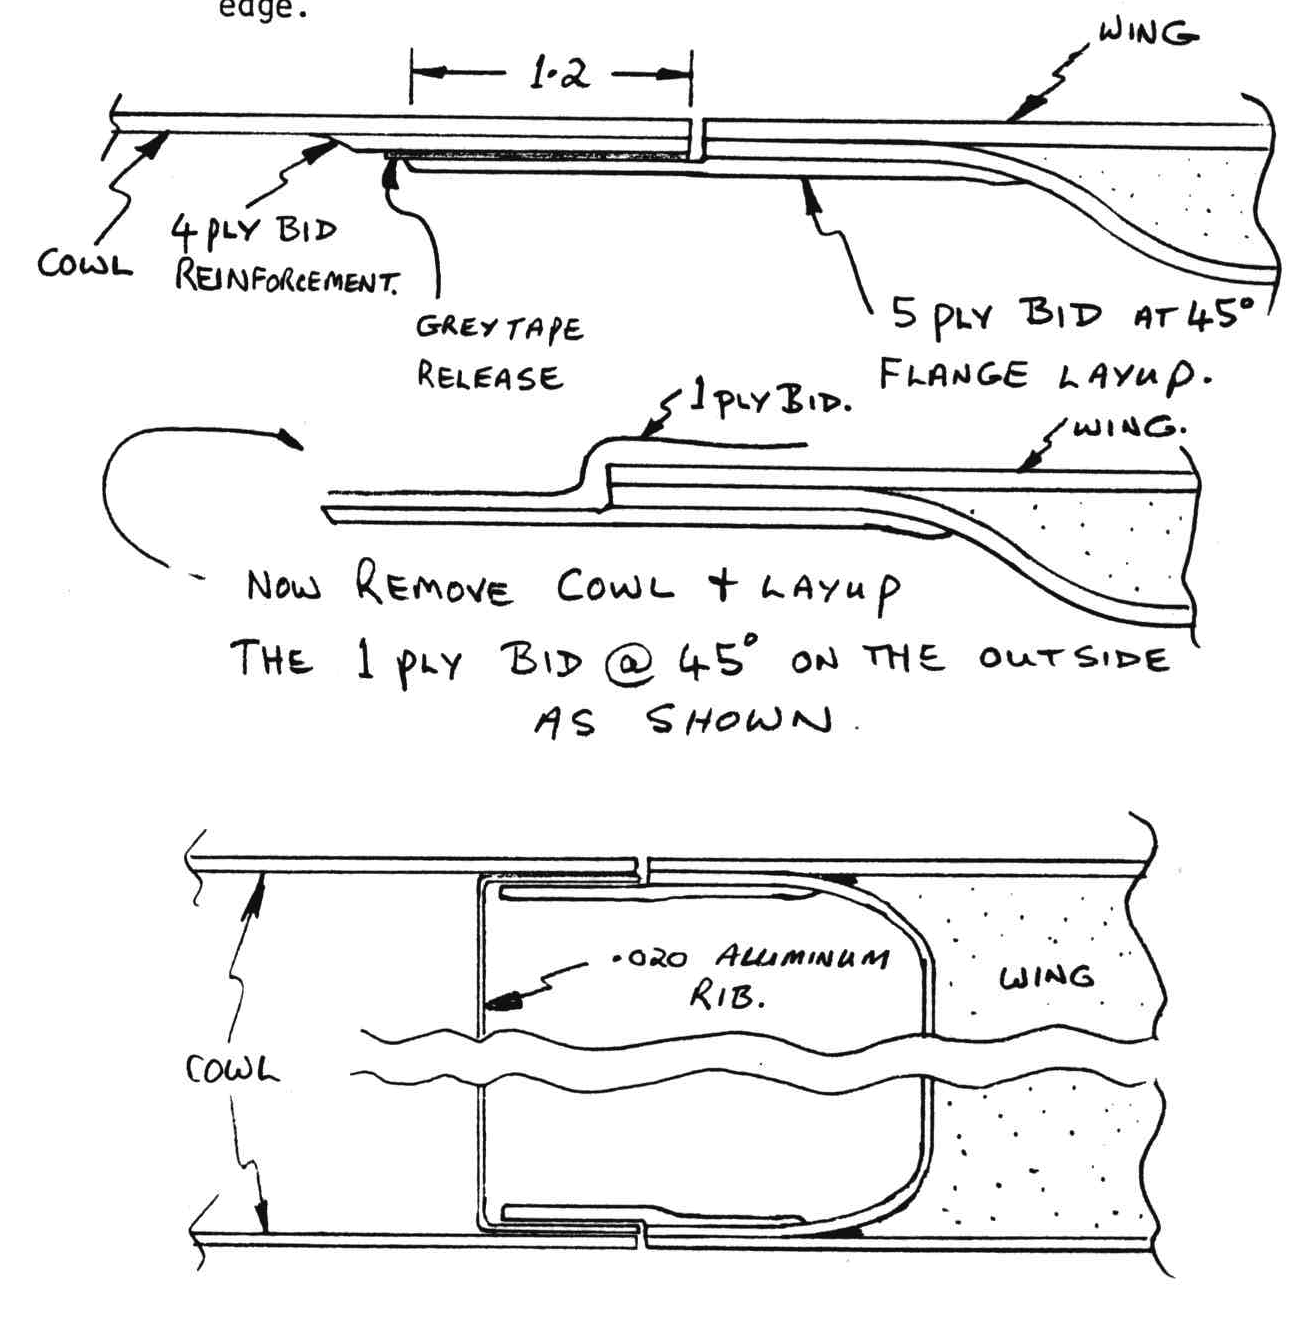 edge.
WING
1.2
COWL
4 PLY BID
REINFORCEMENT.
GREY TAPE
RELEASE
5 PLY BID AT 45°
FLANGE LAYUP.
1 PLY BID.
WING.
NOW REMOVE COWL + LAYUP
THE 1 PLY BID @ 45° ON THE OUTSIDE
AS SHOWN.
.020 ALUMINUM
RIB.
WING
COWL